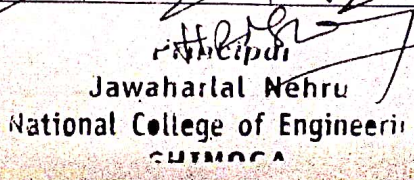 Principal
Jawaharlal Nehru
National College of Engineerin
SHIMOGA